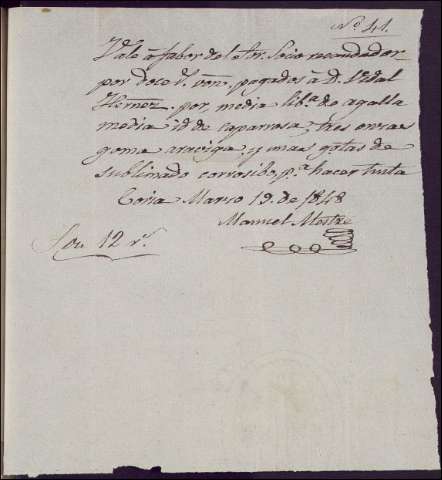 Nº 41.
Vale á fabor del Sor. Socio recaudador
por doce rs. von. pagados á D. Vidal
Hernz. por, media libª. de agalla
media id de caparrosa, tres onzas
goma araviga, y unas gotas de
sublimado corrosibo, pª. hacer tinta
Coria Marzo 19. de 1848
Manuel Mestre
Son 12 rs.